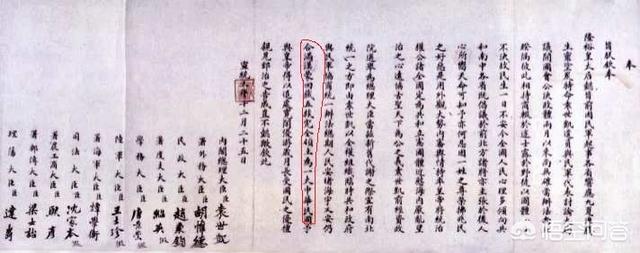 奉
旨朕欽奉
隆裕皇太后懿旨前因民軍起事各省響應九夏沸騰
生靈塗炭特命袁世凱遣員與民軍代表討論大局
議開國會公決政體兩月以來尚無確當辦法南北
暌隔彼此相持商輟於途士露於野徒以國體一日
不決故民生一日不安今全國人民心理多傾向共
和南中各省既倡議於前北方諸將亦主張於後人
心所嚮天命可知予亦何忍因一姓之尊榮拂兆民
之好惡是用外觀大勢內審輿情特率皇帝將統治
權公諸全國定為共和立憲國體近慰海內厭亂望
治之心遠協古聖天下為公之義袁世凱前經資政
院選舉為總理大臣當茲新舊代謝之際宜有南北
統一之方即由袁世凱以全權組織臨時共和政府
與民軍協商統一辦法總期人民安堵海宇乂安仍
合滿漢蒙回藏五族完全領土為一大中華民國予
與皇帝得以退處寬閒優游歲月長受國民之優禮
親見郅治之告成豈不懿歟欽此
宣統三年十二月二十五日
內閣總理大臣臣袁世凱
署外務大臣臣胡惟德
民政大臣臣趙秉鈞
署度支大臣臣紹英假
學務大臣臣唐景崇假
陸軍大臣臣王士珍假
署海軍大臣臣譚學衡
司法大臣臣沈家本假
署農工商大臣臣熙彥
署郵傳大臣臣梁士詒
理藩大臣臣達壽
悟空问答